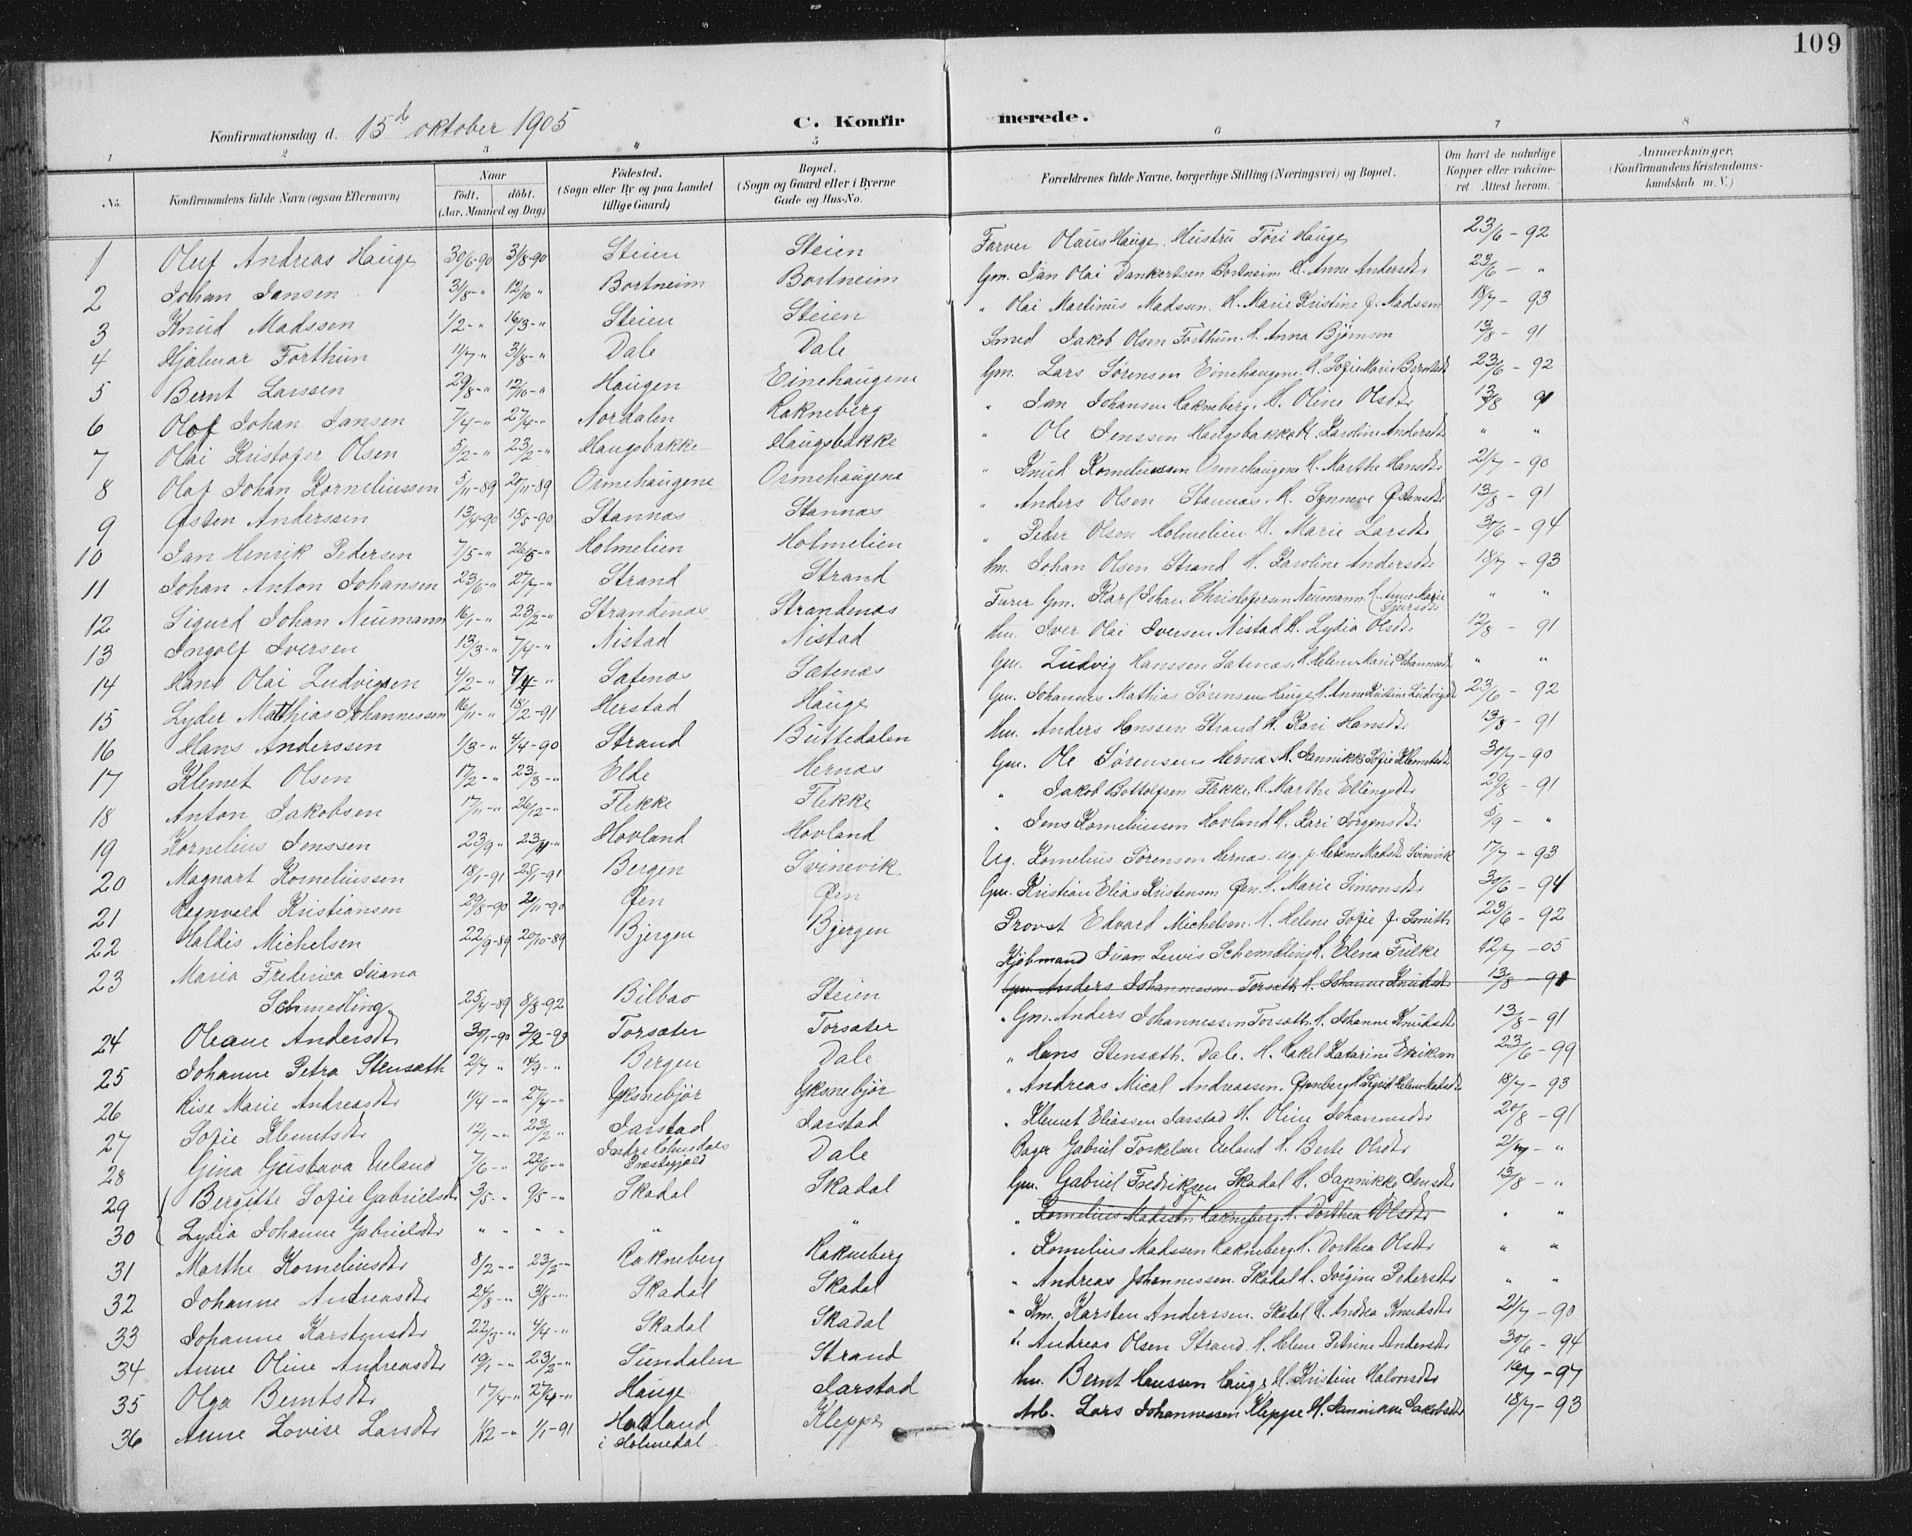 109
Konfirmationsdag d. 15d oktober 1905 C. Konfirmerede.
1 2 3 " 5 6 7 8
No. Konfirmandens fulde Navn (ogsaa Efternavn) Naar Födt. döbt. (Aar, Maaned og Dag) Födested. (Sogn eller By og paa Landet tillige Gaard) Bopæl. (Sogn og Gaard eller i Byerne Gade og Hus-No. Forældrenes fulde Navne, borgerlige Stilling (Næringsvei) og Bopæl. Om havt de naturlige Kopper eller vakcineret Attest herom. Anmærkninger. (Konfirmandens Kristendomskundskab m. V.)
1 Oluf Andreas Hauge 30/6-90 31/8-90 Steien Steien Farver Olaus Hauge. Hustru Töri Hauge 23/6-92
2 Johan Jansen 3/8-" 12/10 " Bortneim Bortneim Gm. Jan Olai Dankertsen Bortneim H. Anne Andersdtr 23/6-"
3 Knud Madssen 1/2-" 16/3-" Steien Steien " Olai Martinus Madssen. H. Marie Kristine f. Madssen 18/7-93
4 Hjalmar Forthun 11/7-" 31/8-" Dale Dale Smed Jakob Olsen Forthun. H. Anna Bjørnsen 13/8-91
5 Bernt Larssen 29/8-" 12/10-" Haugen Einehaugene Gm. Lars Sørensen Einehaugene H. Sofie Marie Berntsdtr 23/6-92
6 Olof Johan Jansen 7/4-" 27/4-" Nordalen Rakneberg " Jan Johansen Rakneberg. H. Oline Olsdtr 13/8 91
7 Olai Kristofer Olsen 5/2-" 23/2-" Haugsbakke Haugsbakke " Ole Jenssen Haugsbakke H. Karoline Andersdtr " "
8 Olaf Johan Korneliussen 5/11-89 27/11-89 Ormehaugene Ormehaugene " Knud Korneliussen Ormehaugene H. Marthe Hansdtr 21/7-90
9 Østen Anderssen 13/4-90 15/5-90 Stannas Stannas " Anders Olsen Stannas. H. Synneve Østensdtr 13/8-91
10 Jan Henrik Pedersen 7/5-" 26/5-" Holmelien Holmelien " Peder Olsen Holmelien H. Marie Larsdtr 30/6-94
11 Johan Anton Johansen 23/6-" 27/7-" Strand Strand Hm. Johan Olsen Strand H. Karoline Andersdtr 18/7-93
12 Sigurd Johan Neumann 16/1-" 23/2-" Strandenas Strandenas Furer Gm. Karl Johan Christofersen Neumann. H. Anne Marie Sjursdtr " "
13 Ingolf Iversen 13/3-" 7/4-" Nistad Nistad Hm. Iver Olai Iversen Nistad H. Lydia Olsdtr 12/8-91
14 Hans Olai Ludvigsen 4/2-" 7/4-" Sætenas Sætenas Gm. Ludvig Hanssen Sætenas. H. Helene Marie Johannesdtr " "
15 Lyder Matthias Johannessen 16/11-" 15/2-91 Herstad Hauge Gm. Johannes Mathias Sørensen Hauge H. Anne Kristine Ludvigsdtr 23/6-92
16 Hans Anderssen 1/3-" 4/4-90 Strand Büttedalen Hm. Anders Hanssen Strand H. Kari Hansdtr 13/8-91
17 Klemet Olsen 17/2-" 23/3-" Elde Hernas Gm. Ole Sørensen Hernas H. Jannikke Sofie Klemetsdtr 30/7-90
18 Anton Jakobsen 17/11-" 26/12-" Flekke Flekke " Jakob Bottolfsen Flekke. H. Marthe Ellingsdtr 29/8-91
19 Kornelius Jenssen 23/9 " 23/11-" Hovland Hovland " Jens Korneliussen Hovland H. Kari Jørgensdtr 5/9-"
20 Magnart Korneliussen 18/1-91 25/1-91 Bergen Svinevik Ug. Kornelius Sørensen Hernas. ug. p. Helene Madsdtr Svinevik 17/7-93
21 Regnvald Kristiansen 29/8-90 2/11-90 Øen Øen Gm. Kristian Elias Kristensen Øen. H. Marie Simonsdtr 30/6-94
22 Haldis Michelsen 22/9-89 20/10-89 Bjergen Bjergen Provst Edvard Michelsen. H. Helene Sofie f. Smitt 23/6-92
23 Maria Frederica Juana Schmedling 25/4-89 8/8-92 Bilbao Steien Kjøbmand Juan Lewis Schmedling H. Elena Frilke 12/7-05
Gm. Anders Johannessen Torsæth H. Johanne Knudsdtr 13/8-91
24 Oleane Andersdtr 30/1-90 2/2-90 Torsæter Torsæter " Gm. Anders Johannessen Torsæth. H. Johanne Knudsdtr 13/8-91
25 Johanne Petra Stensæth 2/7 " 14/9-" Bergen Dale " Hans Stensæth. Dale. H. Rakel Katarine Eriksen 23/6-99
26 Rise Marie Andreasdtr 11/4-" 27/4-" Yksnebjør Yksnebjør " Andreas Mical Andreassen. H. Sigrid Helene Madsdtr 18/7-93
27 Sofie Klemetsdtr 12/1-" 23/2 " Jarstad Jarstad " Klemet Eliassen Jarstad H. Oline Johannesdtr 20/8-91
28 Gina Gustava Ueland 7/6-" 22/6-" Indre Holmedals Præstegjæld Dale Bager Gabriel Torkelsen Ueland H. Berte Olsdtr 21/7-"
29 Bergitte Sofie Gabrielsdtr 3/5-" 9/5-" Skadal Skadal Gm. Gabriel Fredriksen Skadal H. Jannikke Jensdtr 13/8-"
30 Lydia Johanne Gabrielsdtr " " " " " " " Kornelius Madssen Rakneberg. H. Dorthea Olsdtr " "
31 Marthe Korneliusdtr 8/2-" 23/2-" Rakneberg Rakneberg " Kornelius Madssen Rakneberg H. Dorthea Olsdtr " "
32 Johanne Andreasdtr 24/8-" 31/8-" Skadal Skadal " Andreas Johannessen. Skadal H. Jørgine Pedersdtr " "
33 Johanne Karstensdtr 22/3-" 4/4-" Skadal Skadal " Hm. Karsten Anderssen. Skadal H. Andrea Knudsdtr 21/7-90
34 Anne Oline Andreasdtr 19/1-" 23/2-" Sundalen Strand " Andreas Olsen Strand. H. Helene Petrine Andersdtr 30/6-94
35 Olga Berntsdtr 17/4-" 27/4-" Hauge Jarstad Hm. Bernt Hanssen Hauge H. Kristine Halvorsdtr 16/7-97
36 Anne Lovise Larsdtr 1/12-" 1/1-91 Hadland i Holmedal Kleppe Arb. Lars Johannessen Kleppe H. Jannikke Jakobsdtr 18/7-93